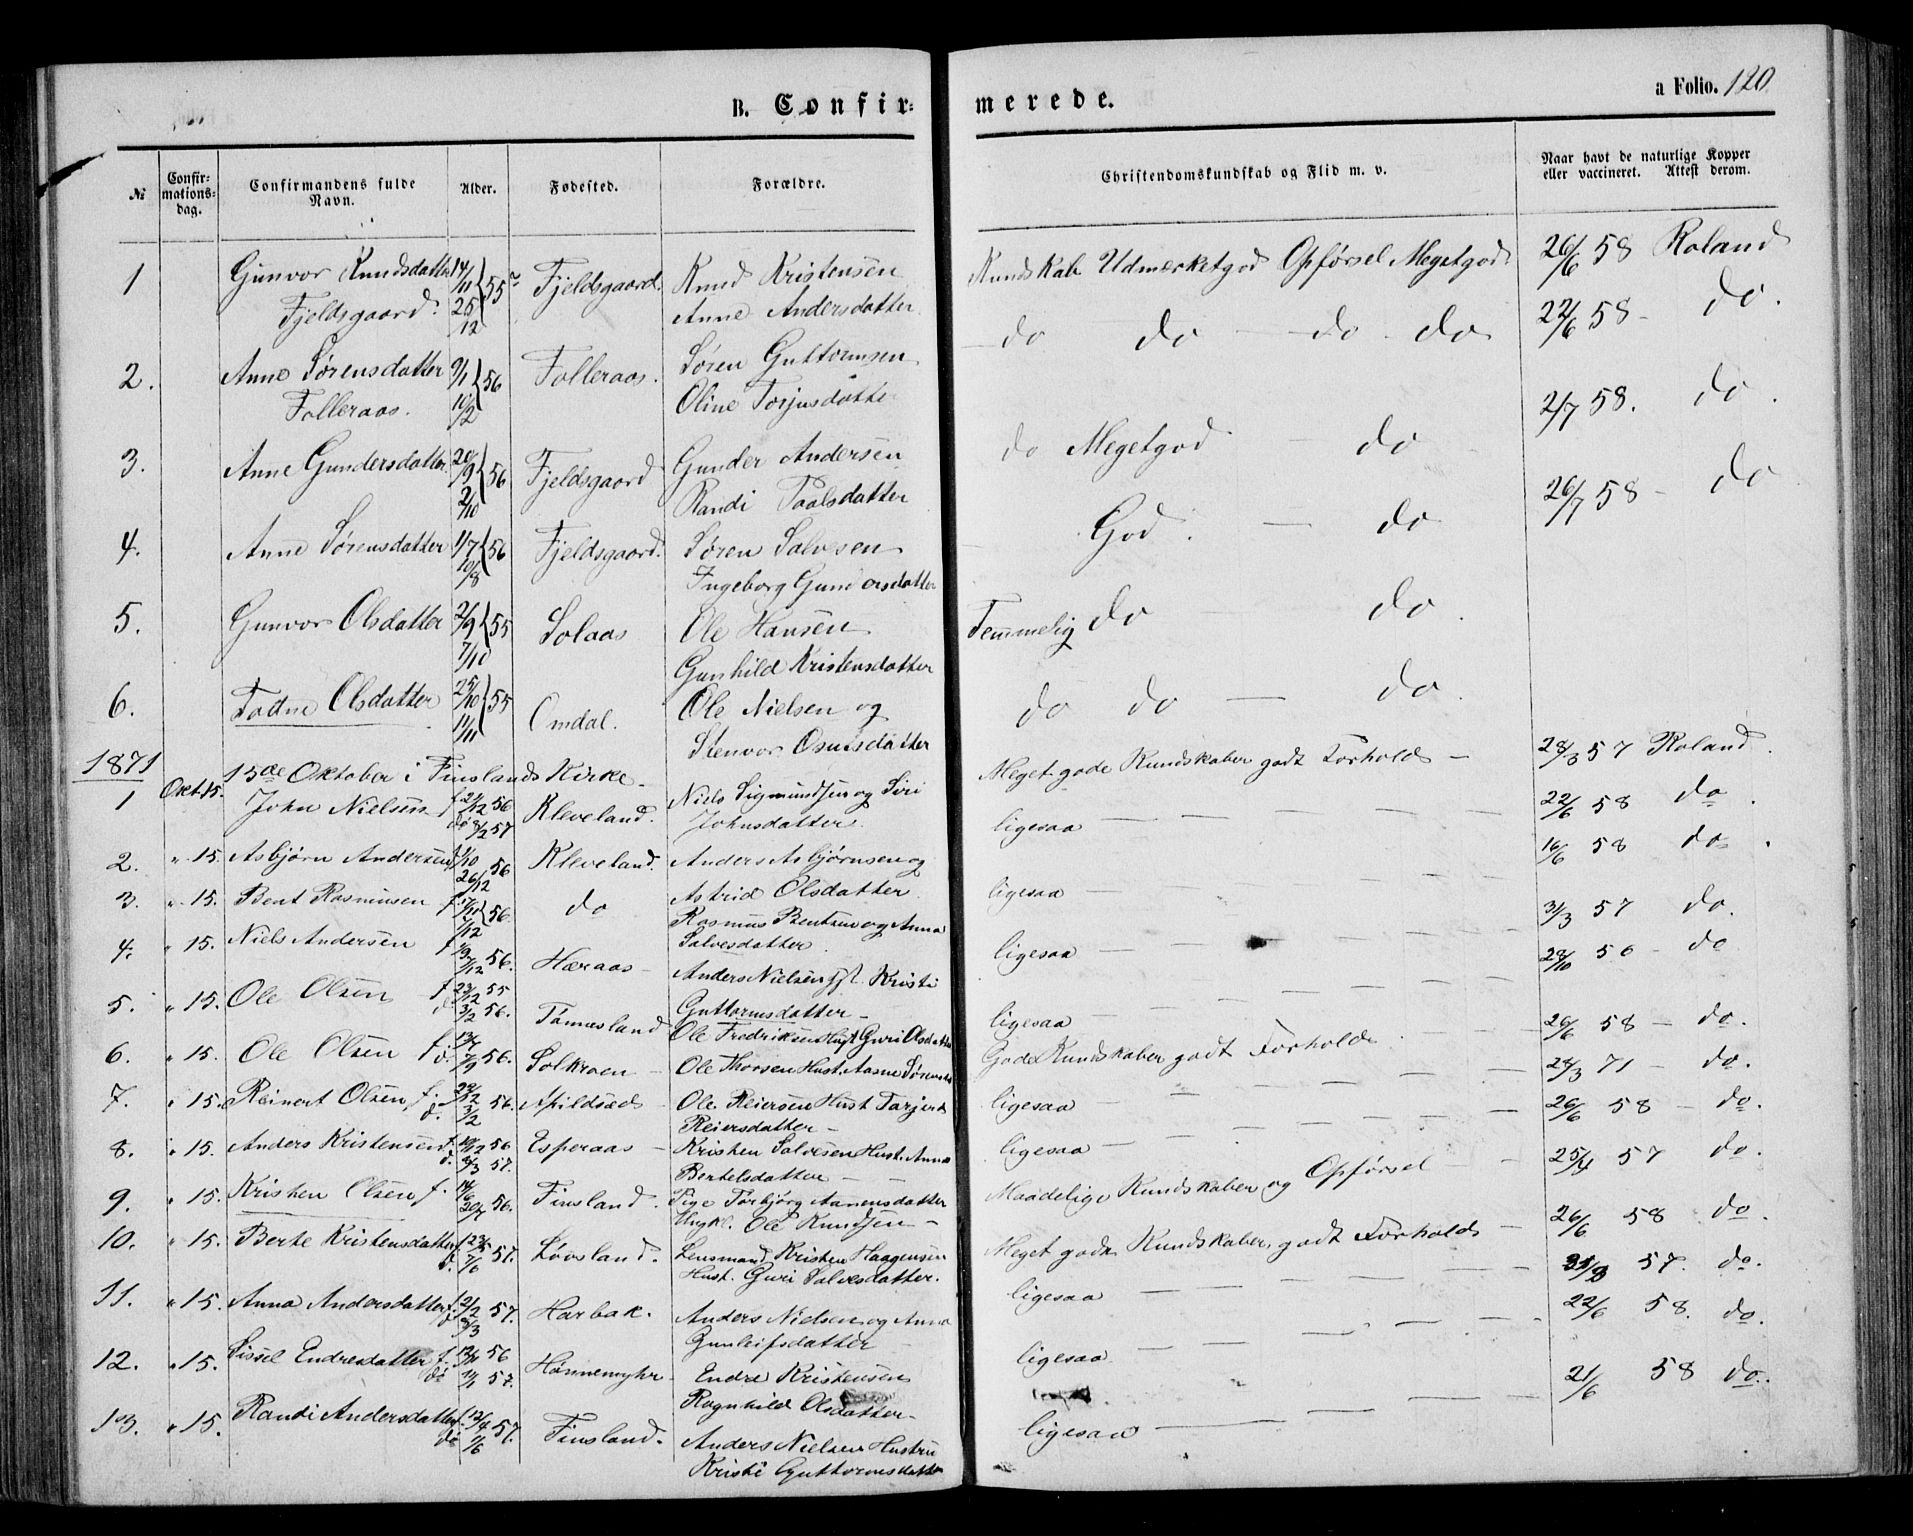 B. Confirmerede. a Folio. 120
No Confirmationsdag. Confirmandens fulde Navn. Alder. Fødested. Forældre. Christendomskundskab og Flid m. v. Naar havt de naturlige Kopper eller vaccineret. Attest derom.
1 Gunvor Knudsdatter 14/11 55 Fjeldsgaard. Knud Kristensen Kundskab Udmerketgod Opførsel Megetgod 26/6 58 Roland
Fjeldsgaard. 25/12 Anne Andersdatter
do do — do do 22/6 58 - do.
2. Anne Sørensdatter 9/1 56 Folleraas. Søren Guttormsen
Folleraas. 10/2 Oline Torjusdatter
do Megetgod — do 2/7 58. do.
3. Anne Gundersdatter 20/9 56 Fjeldsgaard Gunder Andersen
2/10 Randi Paalsdatter
God. — do 26/7 58 - do
4. Anne Sørensdatter 1/7 56 Fjeldsgaard. Søren Salvesen
10/8 Ingeborg Gundersdatter
5. Gunvor Olsdatter 2/9 55 Solaas Ole Hansen Temmelig do — do.
7/10 Gunhild Kristensdatter
6. Tadne Olsdatter 25/10 55 Omdal. Ole Nielsen og do do — do.
11/11 Stenvor Osuldsdatter
1871 15de Oktober i Finslands Kirke.
1 Okt. 15. John Nielsen f. 21/12 56 Kleveland. Niels Sigmundsen og Siri Meget gode Kundskaber godt Forhold — 28/3 57 Roland.
dø 8/2 57 Johnsdatter.
2. " 15. Asbjørn Andersen 1/10 56 Kleveland. Anders Asbjørnsen og ligesaa — 22/6 58 do.
26/12 Astrid Olsdatter
3. " 15. Bent Rasmusen f. 17/10 56. do Rasmus Bentsen og Anna ligesaa — 16/6 58 do.
7/12 Salvesdatter
4. " 15. Niels Andersen f. 1/9 56. Hæraas - Anders Nielsen Kristi ligesaa — 31/3 57 do.
7/12 Guttormsdatter -
5. " 15. Ole Olsen f. 23/12 55 Tannesland Ole Fredriksen Hust. Guri Olsdatter ligesaa — 28/10 56 - do
d. 3/2 56.
6. " 15. Ole Olsen f. 13/7 56. Solkroen - Ole Thorsen Hust. Aasne Sørensd. Gode Kundskaber godt Forhold. 26/6 58 - do.
d. 7/9
7. " 15. Reinert Olsen f. 56. Apildsæd - Ole Reiersen Hust. Tarjerd ligesaa — 28/3 71 - do.
d. 3/2 Reiersdatter -
8. " 15. Anders Kristensen f. 56 Esperaas - Kristen Salvesen Hust. Anna ligesaa — 26/6 58 - do.
d. 8/3 57. Bertelsdatter - -
9. " 15. Kristen Olsen f. 14/6 56. Finsland. Pige Torbjørg Aanensdatter Maadelige Kundskaber og Opførsel — 25/4 57 do.
20/7 Ungkl. Ole Knudsen -
10. " 15. Berte Kristensdatter f. 23/5 57. Løvsland. Lensmand Kristen Haagensen Meget gode Kundskaber, godt Forhold — 26/6 58 do.
d. 7/6 Hust. Guri Salvesdatter.
11. " 15. Anna Andersdatter f. 2/2 57. Harbak. Anders Nielsen og Anna ligesaa — 57. do.
d. 8/3 Gunleifsdatter
12. " 15. Sissel Endresdatter f. 56 Hønnemyhr - Endre Kristensen ligesaa — 22/6 58. do.
dø 57. Ragnhild Olsdatter-
13. " 15. Randi Andersdatter f. 12/4 57. Finsland. Anders Nielsen Hustru ligesaa — 21/6 58 do.
dø 1/6 Kristi Guttormsdatter